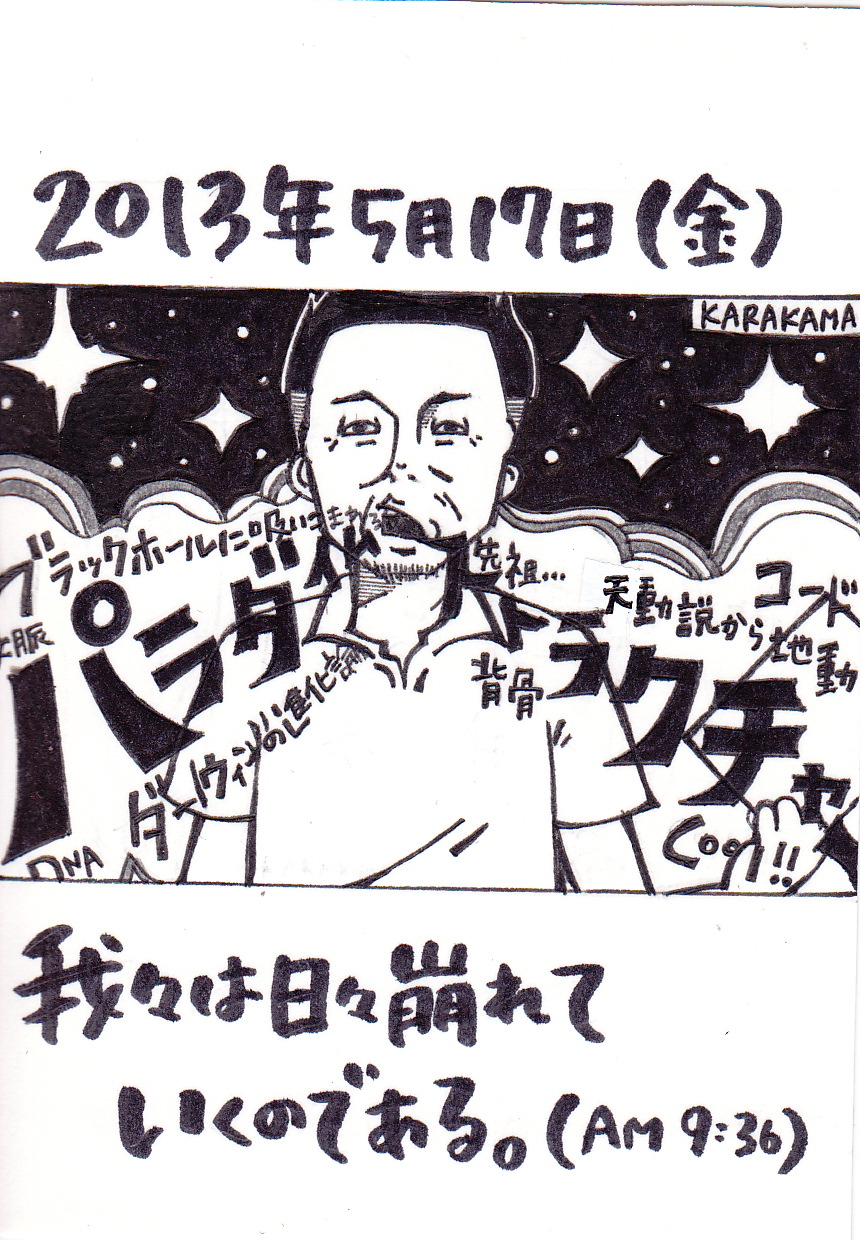 2013年5月17日(金)
KARAKAMA
ブラックホールに吸いこまれ
先祖…
天動説から地動
コード
パラダイムストラクチャ
脈
背骨
ダーウィンの進化論
DNA
Coo!!
我々は日々崩れて
いくのである。(AM 9:36)